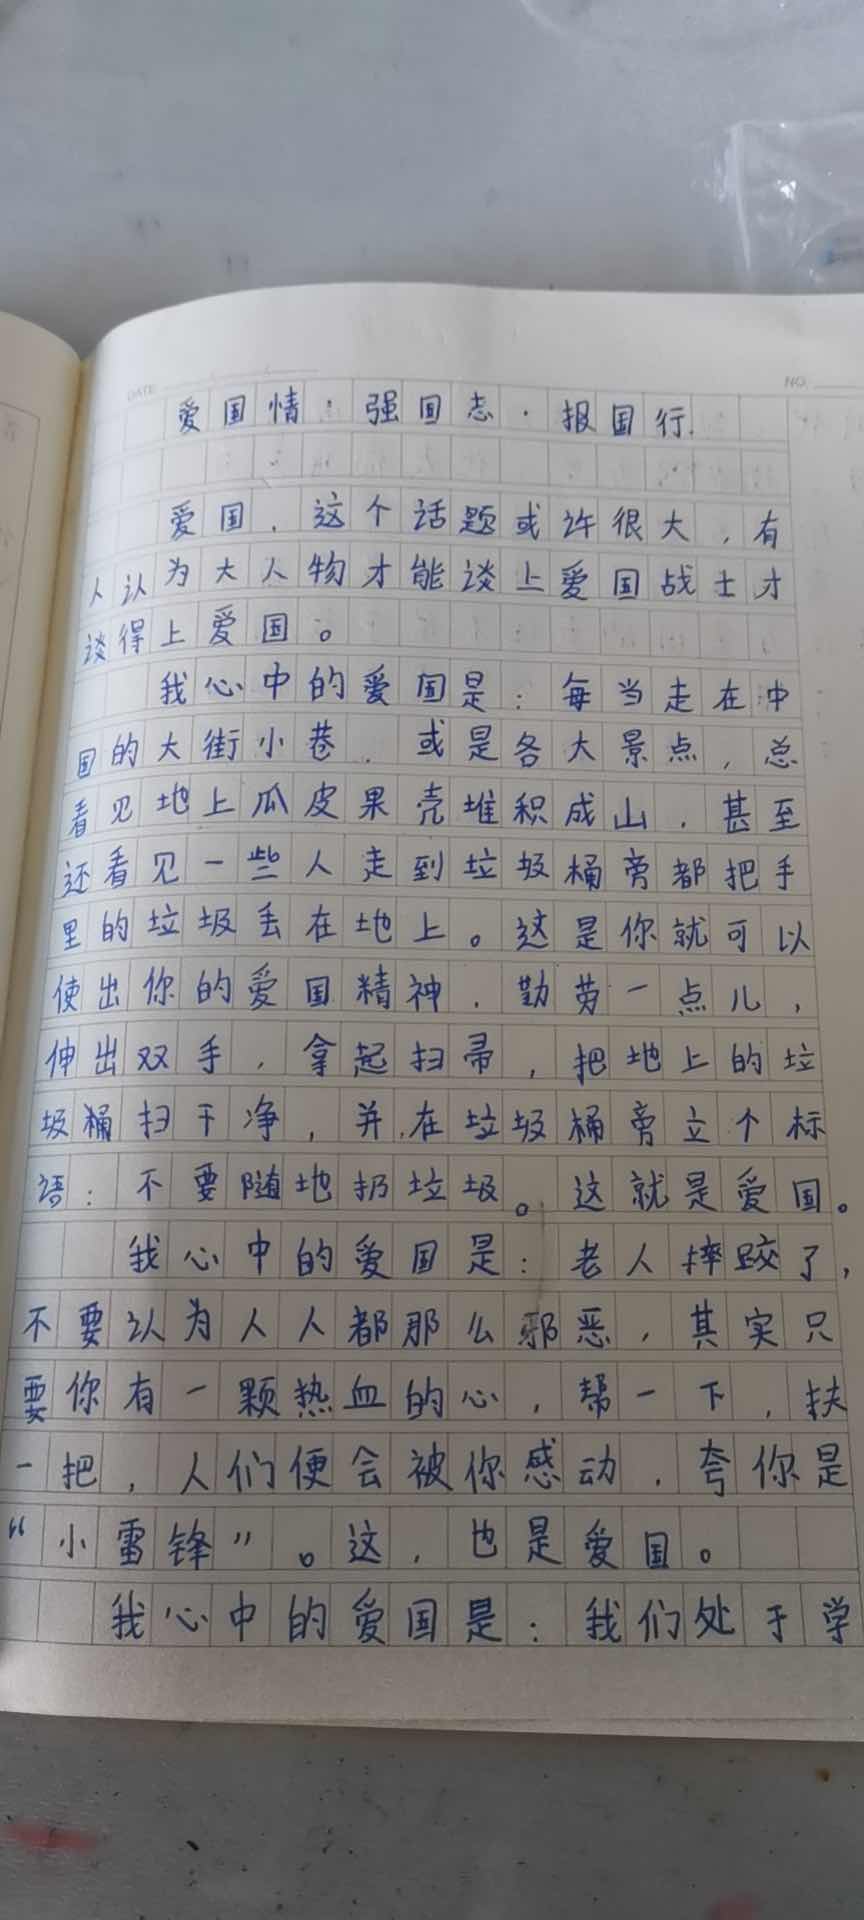 DATE
NO.
爱国情·强国志·报国行
爱国,这个话题或许很大,有
人认为大人物才能谈上爱国战士才
谈得上爱国。
我心中的爱国是:每当走在中
国的大街小巷,或是各大景点,总
看见地上瓜皮果壳堆积成山,甚至
还看见一些人走到垃圾桶旁都把手
里的垃圾丢在地上。这是你就可以
使出你的爱国精神,勤劳一点儿,
伸出双手,拿起扫帚,把地上的垃
圾桶扫干净,并在垃圾桶旁立个标
语:不要随地扔垃圾。这就是爱国。
我心中的爱国是:老人摔跤了,
不要认为人人都那么邪恶,其实只
要你有一颗热血的心,帮一下,扶
一把,人们便会被你感动,夸你是
“小雷锋”。这,也是爱国。
我心中的爱国是:我们处于学